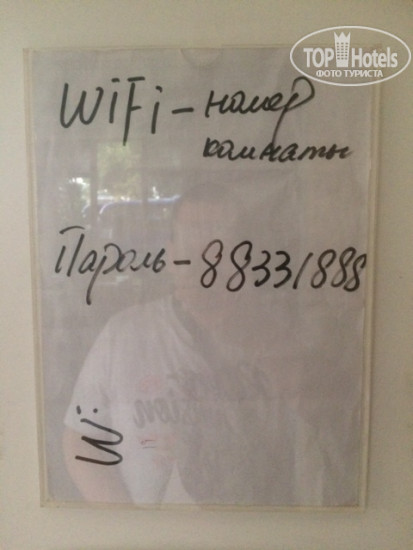 TOP Hotels
ФОТО ТУРИСТА
WiFi - номер
комнаты
Пароль - 88331888